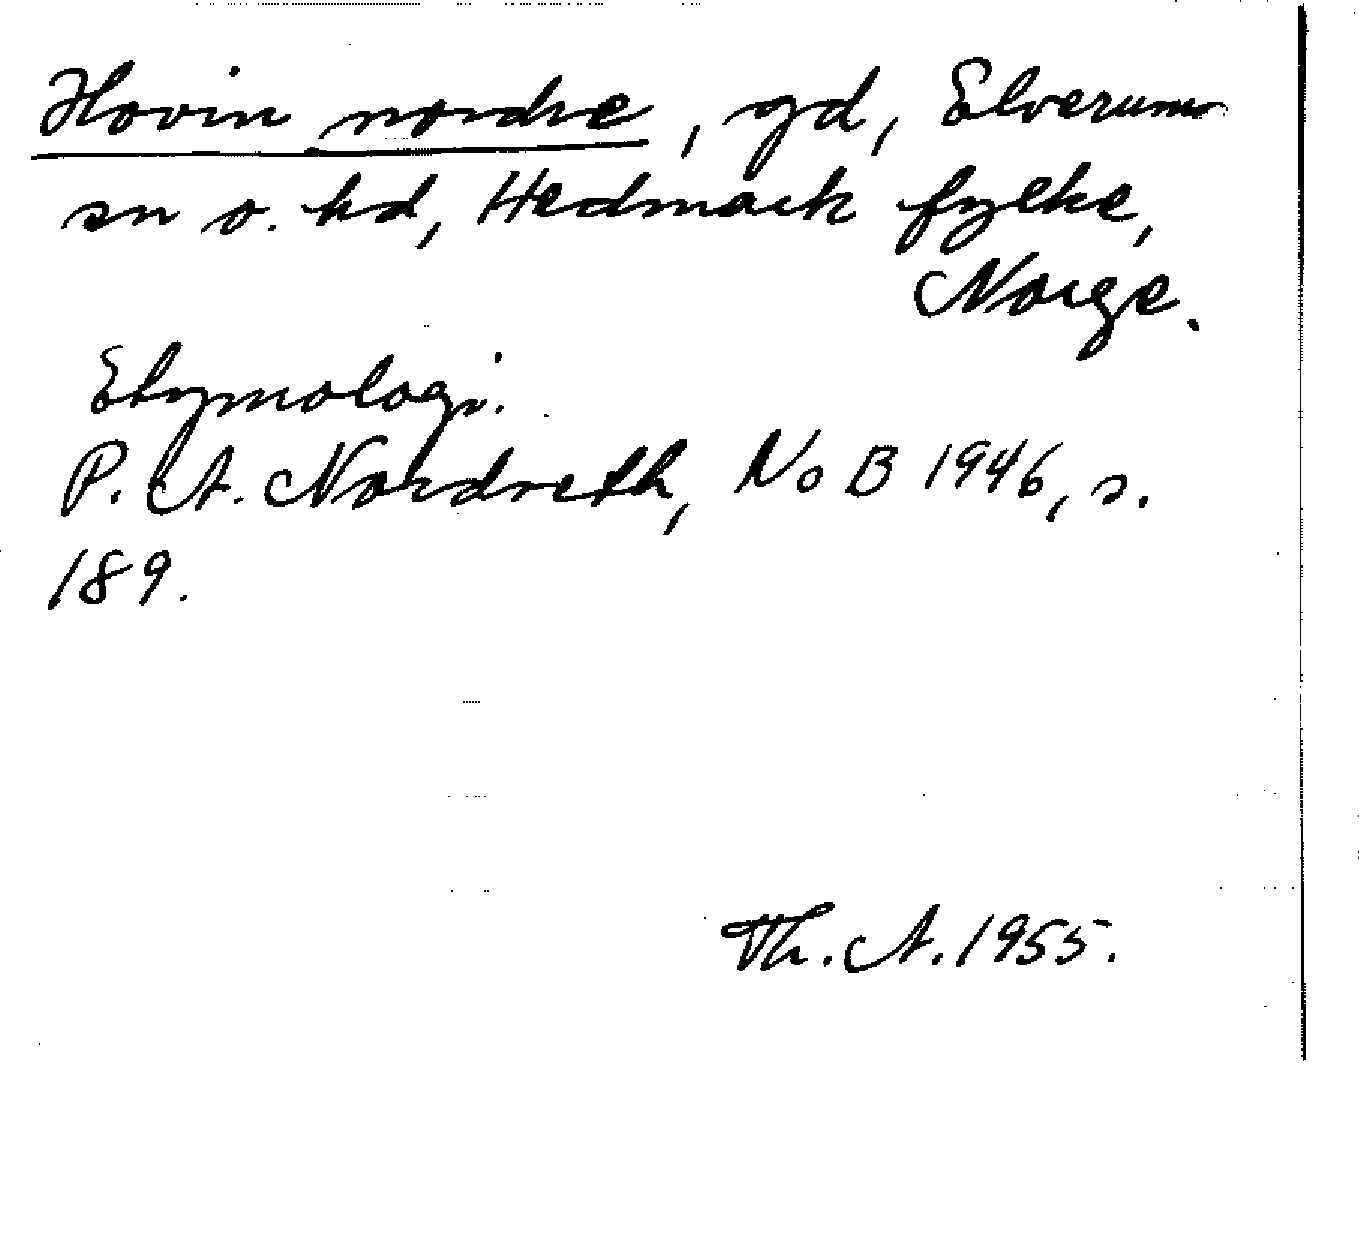 Hovin nordre, gd, Elverums
sn o. hd, Hedmark fylke,
Norge.
Etymologi.
P. A. Nordreth, NoB 1946, s.
189.
Th. A. 1955.